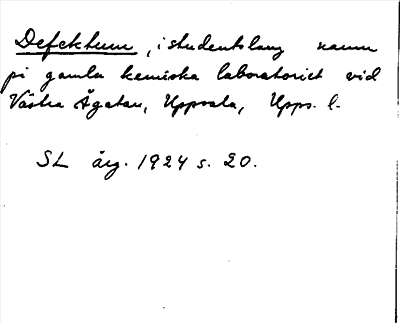 Defektum, i studentslang namn
på gamla kemiska laboratoriet vid
Västra Ågatan, Uppsala, Upps. l.
SL årg. 1924 s. 20.